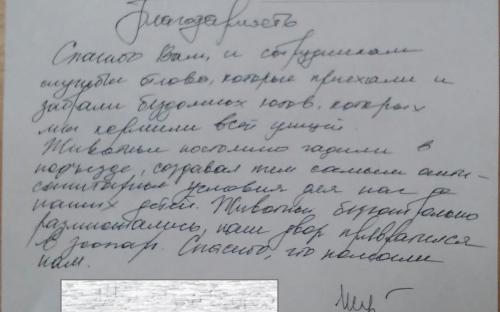 Благодарность
Спасибо Вам, и сотрудникам
службы отлова, которые приехали и
забрали бездомных котов, которых
мы кормили всей улицей.
Животные постоянно гадили в
подъезде, создавая тем самым анти-
санитарные условия для нас да
наших детей. Животные бесконтрольно
размножались, наш двор превратился
в зоопарк. Спасибо, что помогли
нам.